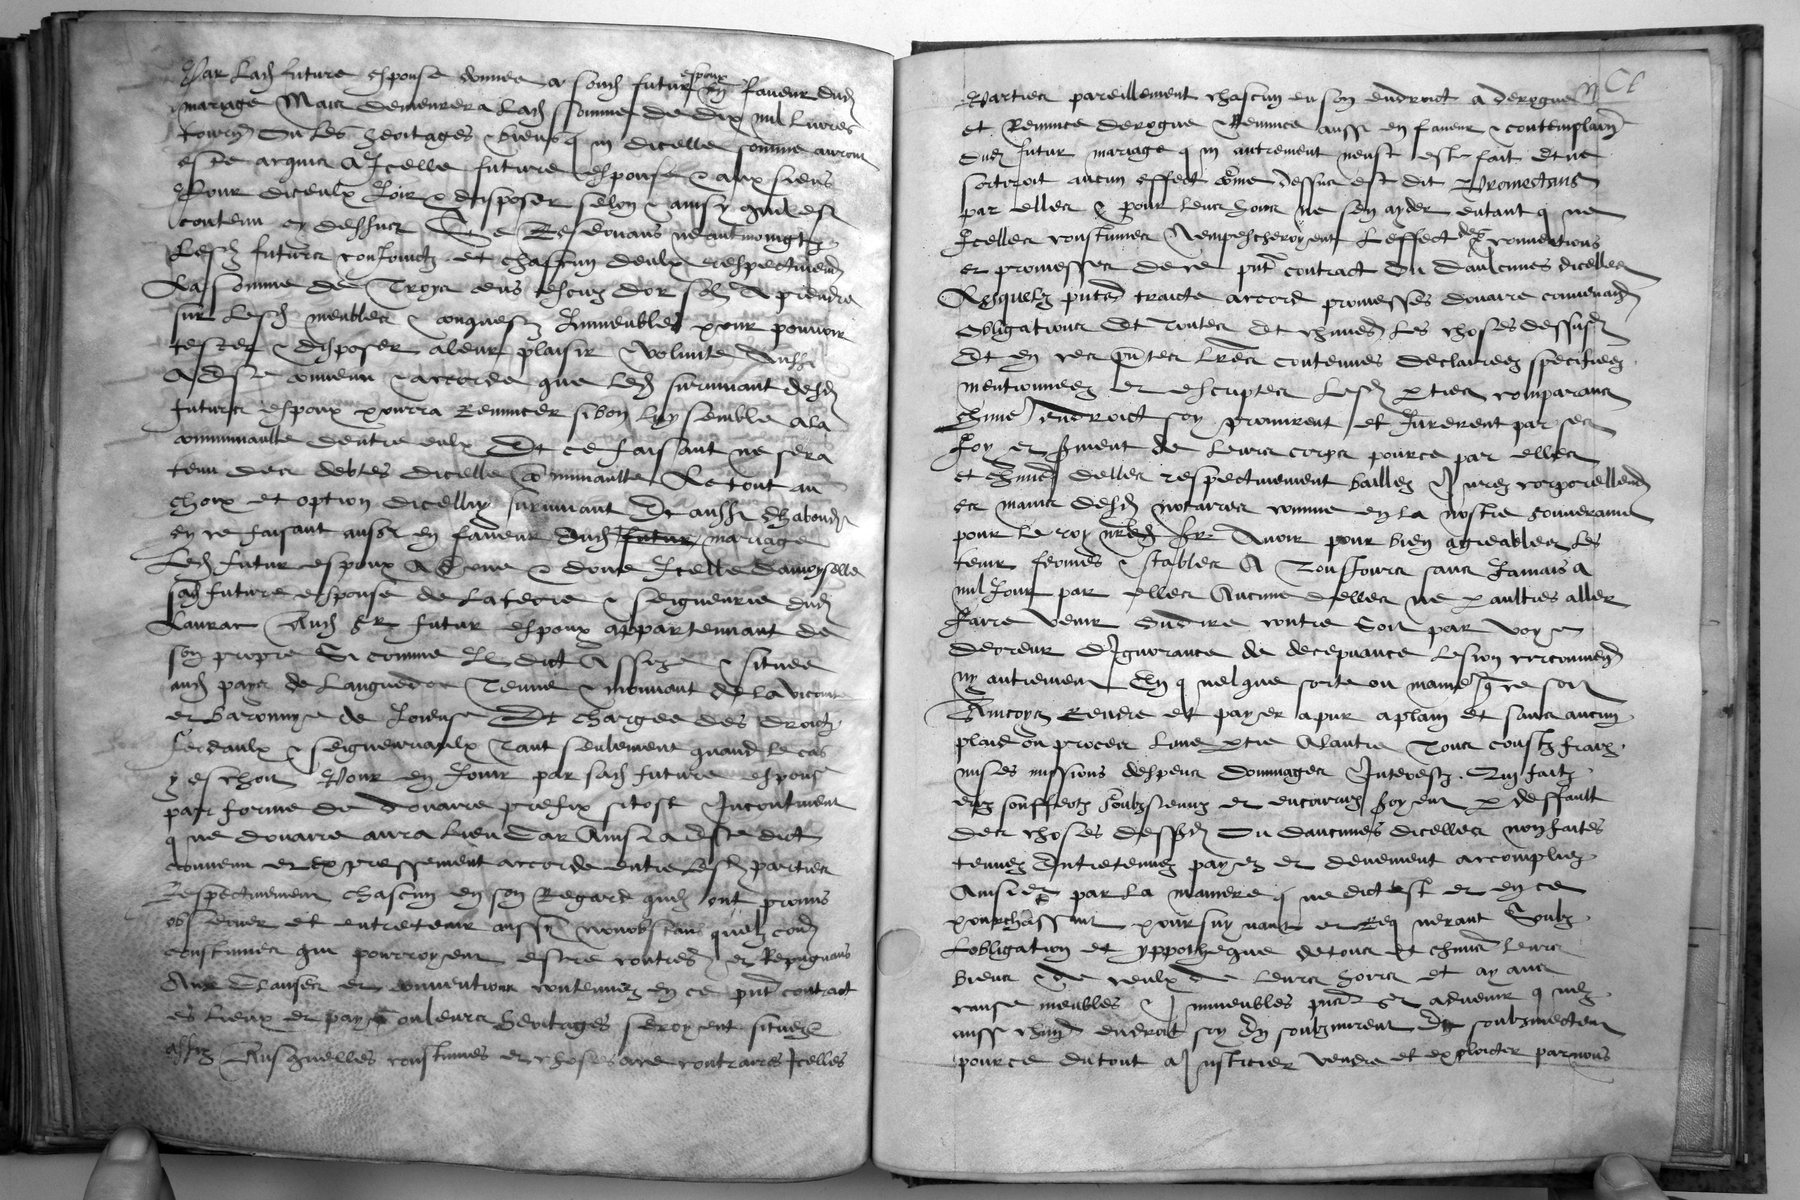 Par lad future espouse donnee a sond futur espoux en faveur dud
mariage Mais demeurera lad somme de dix mil livres
tourn Ou les heritages & biens q in dicelle somme auront
este acquis a Icelle future espouse & aux siens
Pour diceulx Joir & disposer selon & ainsy quil est
contenu cy dessus Et se Redouans neantmoingtz
Lesd futurs conjoinctz et chascun deulx respectivemt
La somme de Troys cens escuz dor sol A prendre
sur lesd meubles & conquestz Immeubles pour pouvoir
tester & disposer a leur plaisir & volunte Aussi
A este convenu & accorde que led survivant desd
futurs espoux pourra Renuncer si bon luy semble a la
communaulte dentre eulx Et ce faisant ne sera
tenu des debtes dicelle communaulte Le tout au
choix et option dicelluy survivant Et aussi
en ce faisant aussi en faveur dud futur mariage
Led futur espoux A doue & doue Icelle damoyselle
sad future espouse de la terre & seigneurie dud
Laurac Aud sr futur espoux appartenant de
son propre Si comme Il dict Assize & situee
aud pays de Languedoc Tenue & mouvant de la viconte
et baronnye de Joieuse Et chargee des droictz
feodaulx & seigneuriaulx Tant seulement quand le cas
y eschoit Pour en Jouir par sad future espouse
par forme de douaire prefix si tost & Incontinent
que douaire aura lieu Car Ainsi a este dict
convenu et expressement accorde entre lesd parties
Respectivement chascun en son Regard quilz ont promis
observer et entretenir aussi Nonobstans quelz
coustumes qui pourroyent estre contres et Repugnans
Aux Clauses et conventions contenues en ce pnt contract
es lieux et pays ou leurs heritages seroyent situez &
assiz Ausquelles coustumes et choses a ce contraires Icelles
Parties pareillement chascun en son endroict a derogue
et Renunce derogue & Renunce aussi en faveur & contemplaon
dud futur mariage q in autrement neust este fait Et ne
sortiroit aucun effect come dessus est dit Promectans
par elles & pour leurs hoirs ne sen ayder entant q ne
Icelles coustumes Nempescheroyent Leffect des convenctions
et promesses de ce pnt contract Ou daulcunes dicelles
Lesquelz pntes traicte accord promesses douaire convenances
obligations Et Toutes Et chunes les choses dessusd
Et en ces pntes lres contenues declairees specifiees
mentionnees et escriptes Lesd pties comparans
chune endroict soy promirent et Jurerent par ses
foy et srment de leurs corps pour ce par elles
et chune delles respectivement baillez & Jurez corporellemt
es mains desd notaires comme en la nostre souveraine
pour le roy nred sr Avoir pour bien agreables les
tenir fermes & stables A Tousjours sans Jamais a
nul Jour par elles Aucune delles ne p aultres aller
Faire venir ou dire contre Soit par voye
derreur dIgnorance de decepvance lesion circonvention
ny autrement En q uelque sorte ou maniere q ce soit
Aincoys Rendre et payer a pur a plain et sans aucun
plaid ou proces lune ptie A lautre Tous coustz fraiz
mises missions despens dommages & Interestz Qui faitz
euz souffertz soubstenuz et encouruz seroyent p deffault
des choses dessusd Ou daucunes dicelles non faites
tenues Entretenues payees et deuement accomplies
Ainsi et par la maniere q ne dict est et en ce
pourchassant poursuyvant et Requerant Soubz
Lobligation et ypothecque de tous Et chuns leurs
biens & de ceulx de leurs hoirs et ayans
cause meubles & Immeubles pns et advenir q ilz
aussi chune endroict soy En soubzmirent Et soubzmectent
pour ce du tout a Justicier vendre et exploicter par nous